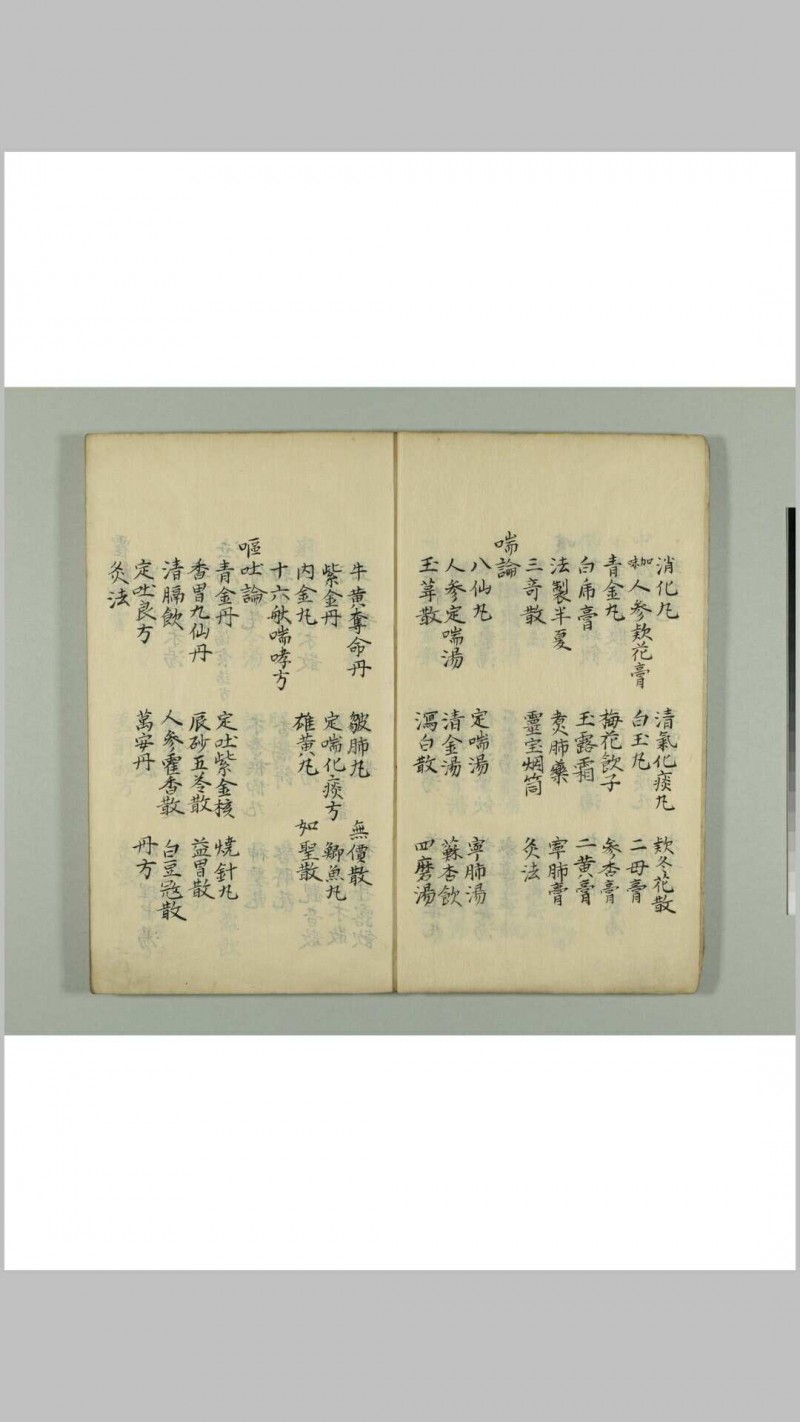 消化凡 清氣化痰凡 欵冬花散
加人參欵花膏 白玉凡 二母膏
青金凡 梅花飲子 參杏膏
白虎膏 玉露霜 二黄膏
法製半夏 煑肺藥 寧肺膏
三竒散 靈宝烟筒 灸法
喘論
八仙凡 定喘湯 寧肺湯
人參定喘湯 清金湯 蘇杏飲
玉蕈散 瀉白散 四磨湯
牛黄奪命丹 皺肺凡 無價散
紫金丹 定喘化痰方 鯽魚凡
内金凡 雄黄凡 如聖散
十六般喘哮方
嘔吐論
青金丹 定吐紫金核 燒針凡
香胃九仙丹 辰砂五苓散 益胃散
清膈飲 人參藿香散 白豆蔲散
定吐良方 萬安丹 丹方
灸法